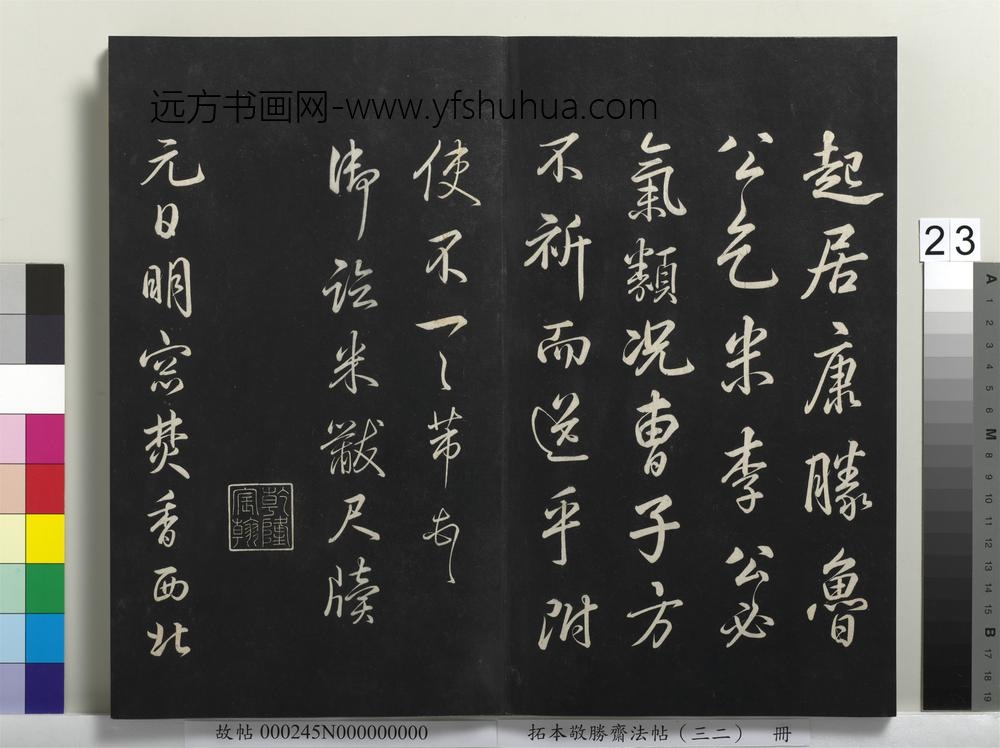 远方书画网-www.yfshuhua.com
起居康勝魯
公乞米李公必
氣類况曹子方
不祈而送乎附
使不一一芾頓首
御臨米黻尺牘
乾隆宸翰
元日明窓焚香西北
23
A 1 2 3 4 5 6 M 8 9 10 11 12 13 14 15 B 17 18 19
故帖 000245N000000000
拓本敬勝齋法帖（三二） 冊